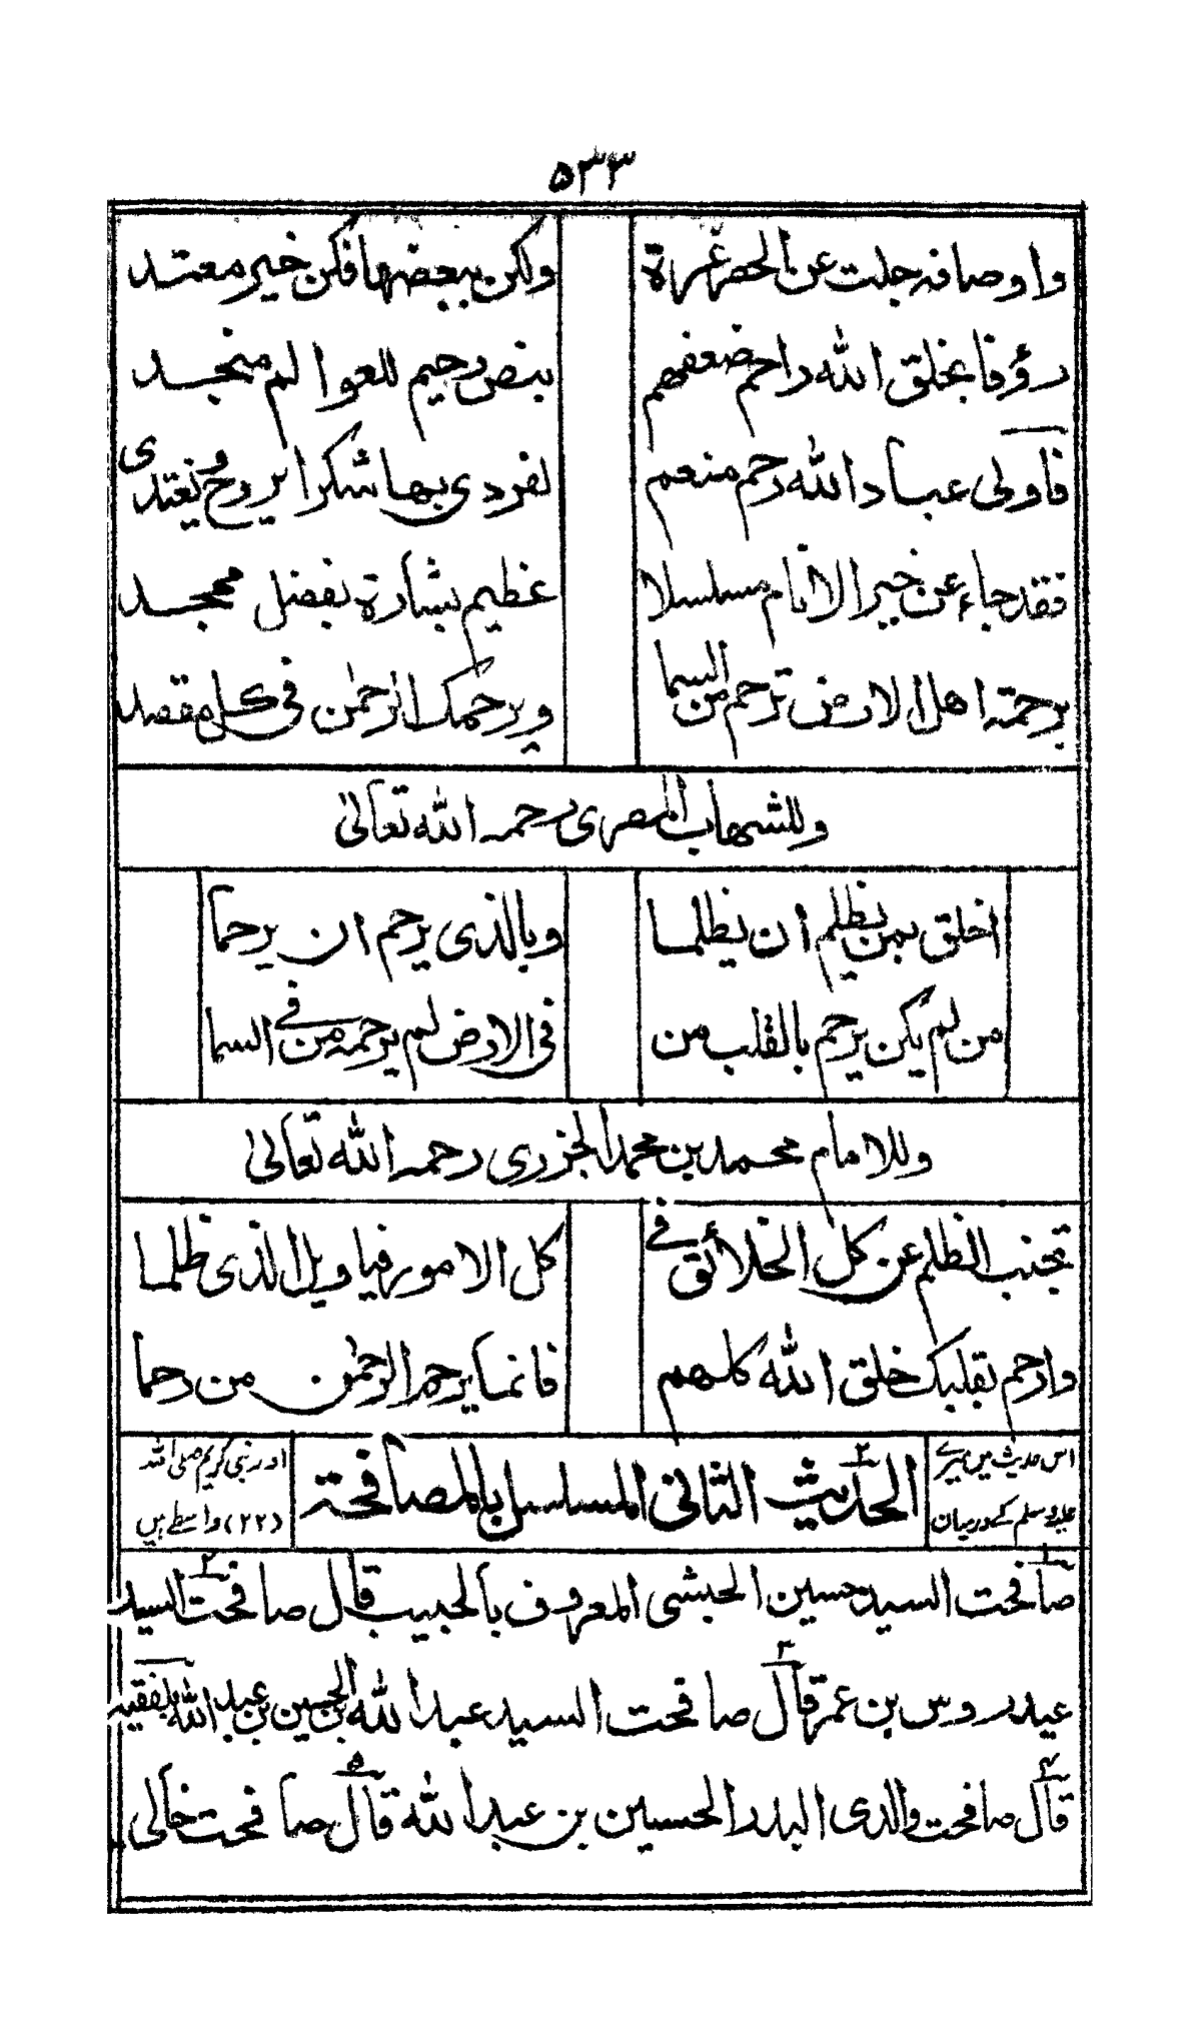 ۵۳۳
واوصافه جلت عن الحصر غرة ولكن ببعضها فكن خير معتد
رؤفا بخلق الله راحم ضعفهم بنص رحيم للعوالم منجد
فاولى عباد الله رحم منعم لفردى بها شكرا يروح ويغتدى
فقد جاء عن خير الانام مسلسلا عظيم بشارة بفضل ممجد
برحمته اهل الارض ترحم من السما ويرحمك الرحمن فى كل مقصد
وللشهاب المصرى رحمه الله تعالىٰ
اخلق بمن يظلم ان يظلما وبالذى يرحم ان يرحما
من لم يكن يرحم بالقلب من فى الارض لم يرحمه من فى السما
وللامام محمد بن محمد الجزرى رحمه الله تعالىٰ
تجنب الظلم عن كل الخلائق فى كل الامور فيا ويل الذى ظلما
وارحم بقلبك خلق الله كلهم فانما يرحم الرحمٰن من رحما
اس حدیث میں میرے اور نبی کریم صلی اللہ
الحديث الثانى المسلسل بالمصافحة ۲
علیہ وسلم کے درمیان (۲۲) واسطے ہیں
صافحت السيد حسين الحبشى المعروف بالحبيب قال صافحت السيد
عيدروس بن عمر قال صافحت السيد عبد الله بن الحسين بن عبد الله بلفقيه
قال صافحت والدى البدر الحسين بن عبد الله قال صافحت خالى